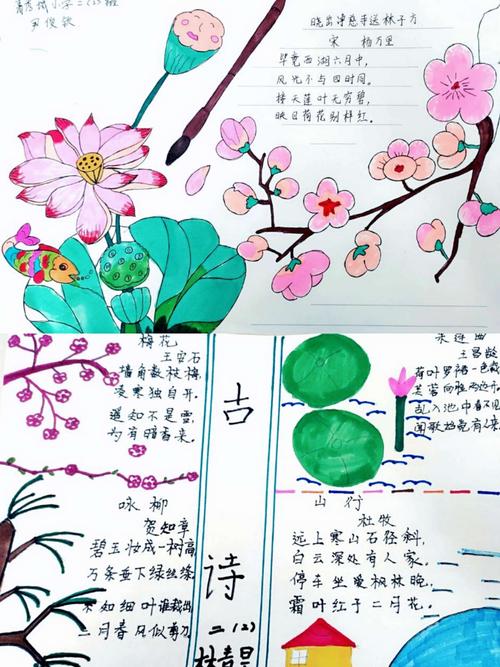 小学二(2)班
尹俊钦
晓出净慈寺送林子方
宋 杨万里
毕竟西湖六月中,
风光不与四时同。
接天莲叶无穷碧,
映日荷花别样红。
梅花
王安石
墙角数枝梅,
凌寒独自开。
遥知不是雪,
为有暗香来。
咏柳
贺知章
碧玉妆成一树高
万条垂下绿丝绦
不知细叶谁裁出
二月春风似剪刀
古
诗
二(2)
采莲曲
王昌龄
荷叶罗裙一色裁
芙蓉向脸两边开
乱入池中看不见
闻歌始觉有人来。
山行
杜牧
远上寒山石径斜,
白云深处有人家。
停车坐爱枫林晚,
霜叶红于二月花。